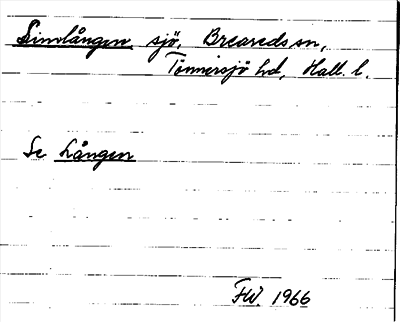 Simlången, sjö, Breareds sn,
Tönnersjö hd, Hall. l.
Se Lången
FW. 1966